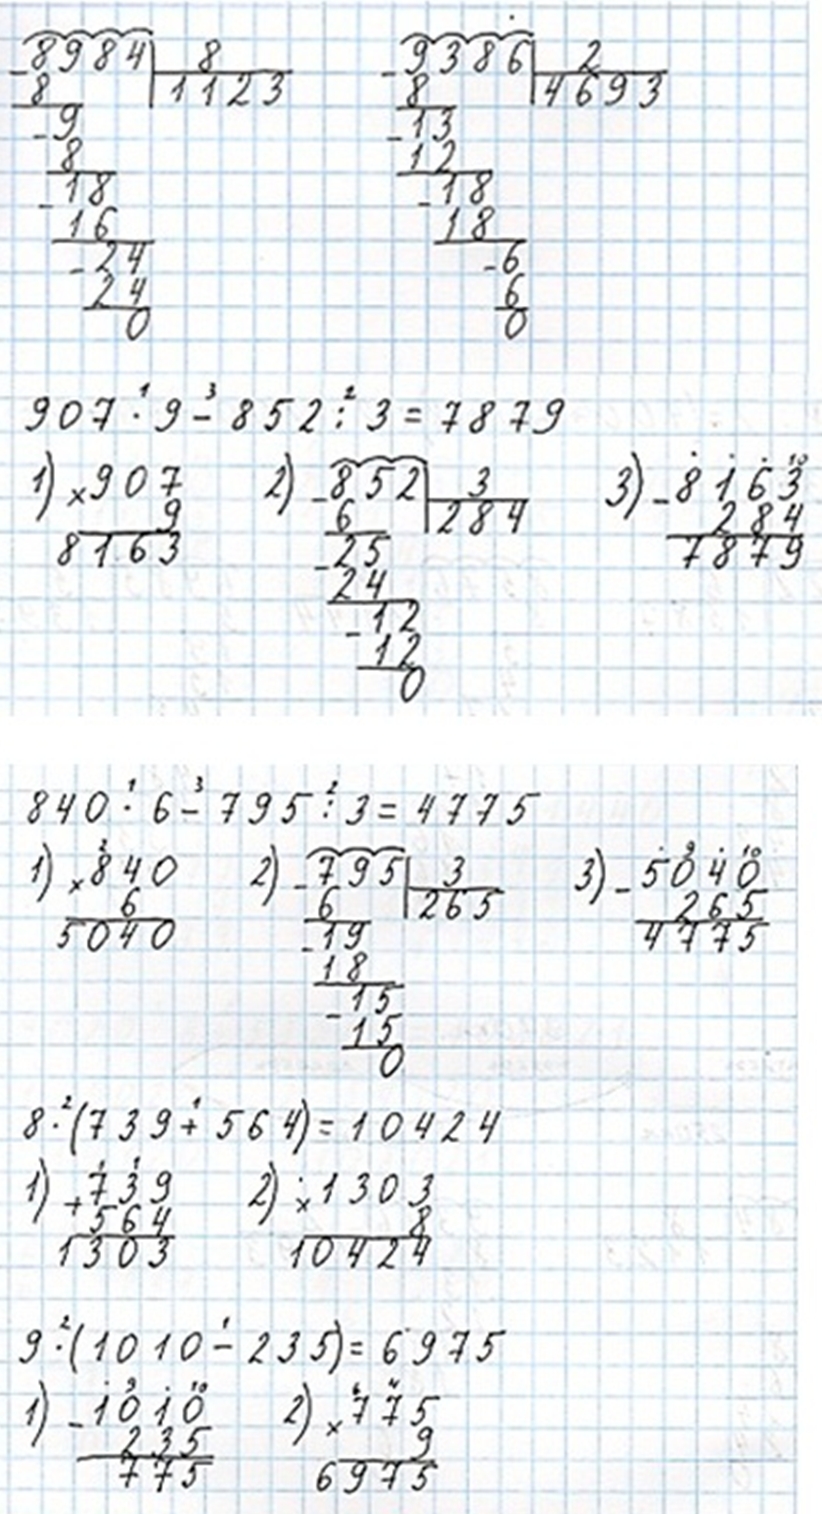 -8984 | 8
8 | 1123
-9
8
-18
16
-24
24
0
-9386 | 2
8 | 4693
-13
12
-18
18
-6
6
0
907 · 9 - 852 : 3 = 7879
1) ×907
9
8163
2) -852 | 3
6 | 284
-25
24
-12
12
0
3) -8163
284
7879
840 · 6 - 795 : 3 = 4775
1) ×840
6
5040
2) -795 | 3
6 | 265
-19
18
-15
15
0
3) -5040
265
4775
8 · (739 + 564) = 10424
1) +739
564
1303
2) ×1303
8
10424
9 · (1010 - 235) = 6975
1) -1010
235
775
2) ×775
9
6975